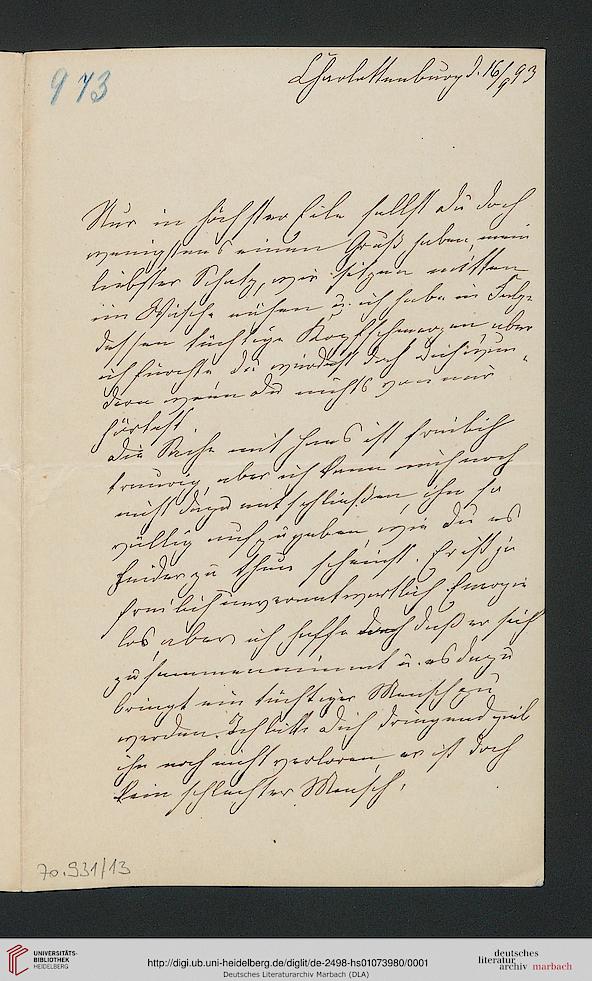 973
Charlottenburg d. 16/9 93
Nur in höchster Eile sollst du doch
wenigstens einen Gruß haben, mein
liebster Schatz, wir sitzen mitten
im Wäsche nähen u. ich habe in Folge
dessen tüchtige Kopfschmerzen aber
ich fürchte du würdest doch dich wun-
dern wenn du nichts von mir
hörtest.
Die Sache mit Hans ist freilich
traurig, aber ich kann mich noch
nicht dazu entschließen ihn so
völlig aufzugeben wie du es
leider zu thun scheinst. Er ist ja
freilich unverantwortlich Energie
los, aber ich hoffe doch daß er sich
zusammennimmt u. es dazu
bringt ein tüchtiger Mensch zu
werden. Ich bitte dich dringend gieb
ihn noch nicht verloren, er ist doch
kein schlechter Mensch,
70.931/13
UNIVERSITÄTS-
BIBLIOTHEK
HEIDELBERG
http://digi.ub.uni-heidelberg.de/diglit/de-2498-hs01073980/0001
Deutsches Literaturarchiv Marbach (DLA)
deutsches
literatur
archiv marbach